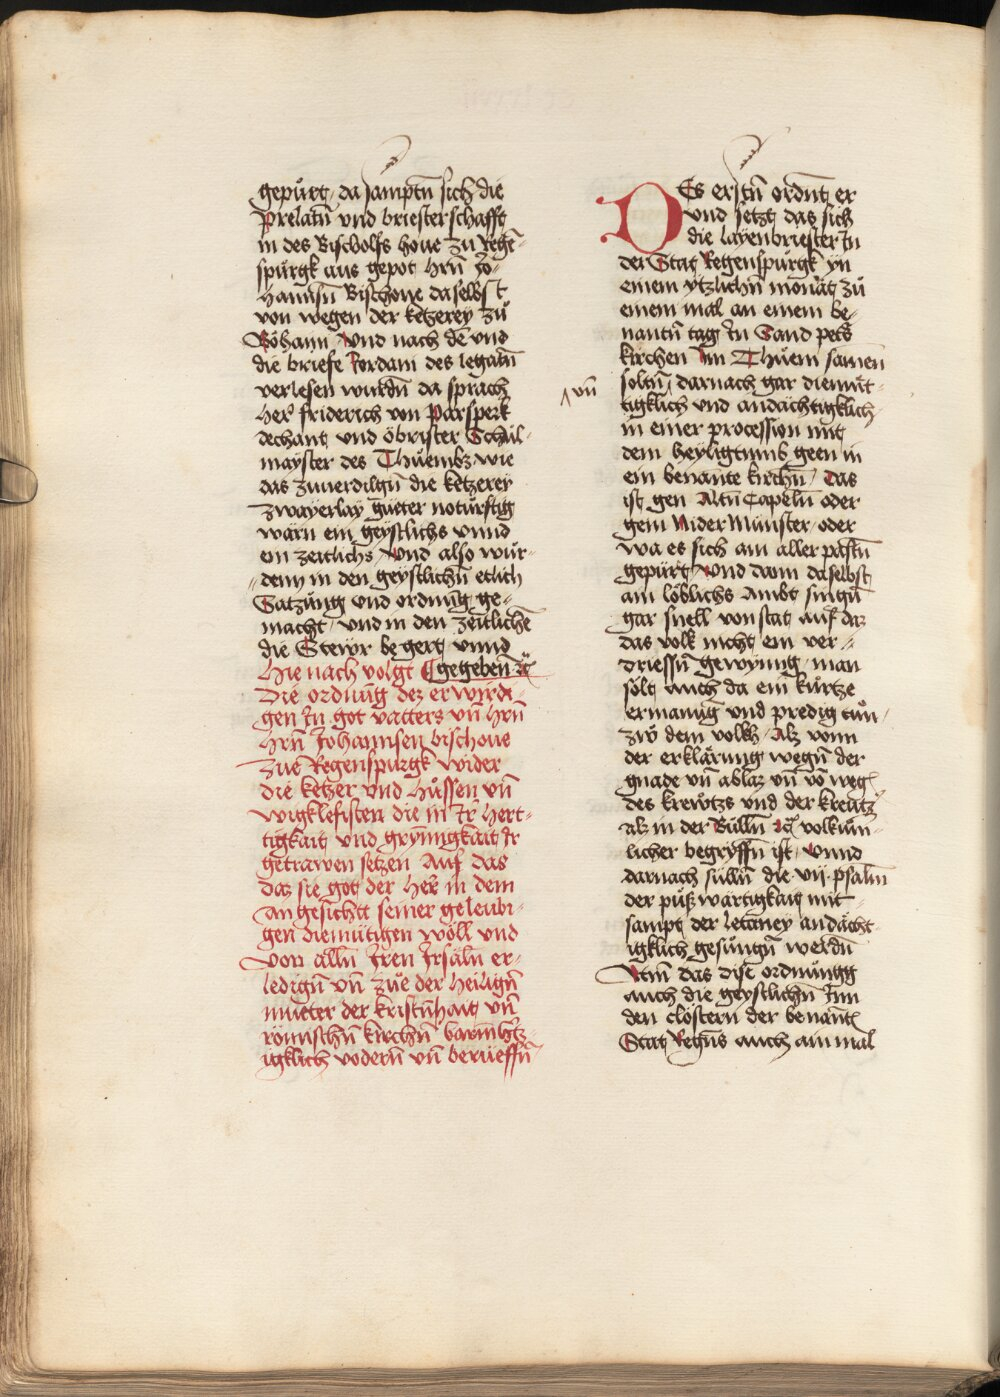 gepürt / da sampttn̄ sich die
Prelatn̄ vnd briesterschafft
in des Bischolfs houe zu Regē-
spürgk aus gepot hrn̄ Jo-
hannsn̄ Bischoue daselbst
von wegen der ketzerey zů
Böhann / Vnd nach dē vnd
die briefe Jordani des legatn̄
verlesen wurdn̄ da sprach
her friderich von Parsperk
dechant vnd öbrister Schůl-
mayster des Thůembz wie
das zuuerdilgn̄ die ketzerey
zwayerlay gütter notürftig
wärn ein geystlichs vnnd
ein zeitlichs / Vnd also wůr-
denn in den geystlichn̄ etlich
Satzůng vnd ordnūg ge-
macht / vnd in den zeitlichē
die Stewr begert vnnd
gegeben ꝛc̄
Hie nach volgt
Die ordnūg dez erwirdi-
gen In got vatters vn̄ hrn̄
Hrn̄ Johannsen bischoue
zue Regenspurgk wider
die ketzer vnd Hůssen vn̄
wigklefisten die in Jr̄ hert-
tigkait vnd grymigkait Jr
getrawen setzen Auf das
daz sie got der Her in dem
angesichtt seiner geleubi-
gen diemütigen wöll vnd
von alln̄ Iren Irsäln er-
ledign̄ vn̄ zůe der heilign̄
mueter der kristn̄hait vn̄
römischn̄ kirchn̄ barmhtz-
igklich vodern vn̄ berüeffn̄
DEs erstn̄ ordnt er
vnd setzt das sich
die layenbriester In
der Stat Regenspůrgk yn
einem ytzlichn̄ monät zů
einem mal an einem be-
nantn̄ tag In Sand peters
kirchen Im Thůem samen
soltn̄ / darnach gar diemüt-
vn̄
tigklich vnd andächtigklich
in einer procession mit
dem heyligtumb geen in
ein benante kirchn̄ / Das
ist gen Altn̄ Capeln̄ oder
gem Nider Münster / oder
wa es sich am aller pastn̄
gepürt / Vnd dann daselbst
ain löblichs Ambt singn̄
gar snell von stat auf daz
das volk nicht ein ver-
driessn̄ gewynng / man
sölt auch da ein kürtze
ermanūg vnd predig tůn
zw dem volkh / Als vonn
der erklärung wegn̄ der
gnade vn̄ ablaz vn̄ vō weg
des krewtzs vnd der kreutz
als in der Bülln̄ ꝛc̄ volkům-
licher begryffn̄ ist / Vnnd
darnach sülln̄ die vij psalm̄
der půßwärtigkait mit-
sampt der letaney andächt-
igklich gesůngn̄ werdn̄
Item das dise ordnůngg
auch die geystlichn̄ Inn
den clöstern der benantē
Stat Regn̄s auch ain mal